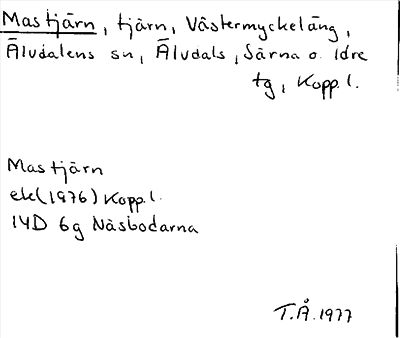 Mastjärn, tjärn, Västermyckeläng,
Älvdalens sn, Älvdals, Särna o. Idre
tg, Kopp. l.
Mastjärn
ek(1976) Kopp. l.
14D 6g Näsbodarna
T.Å. 1977